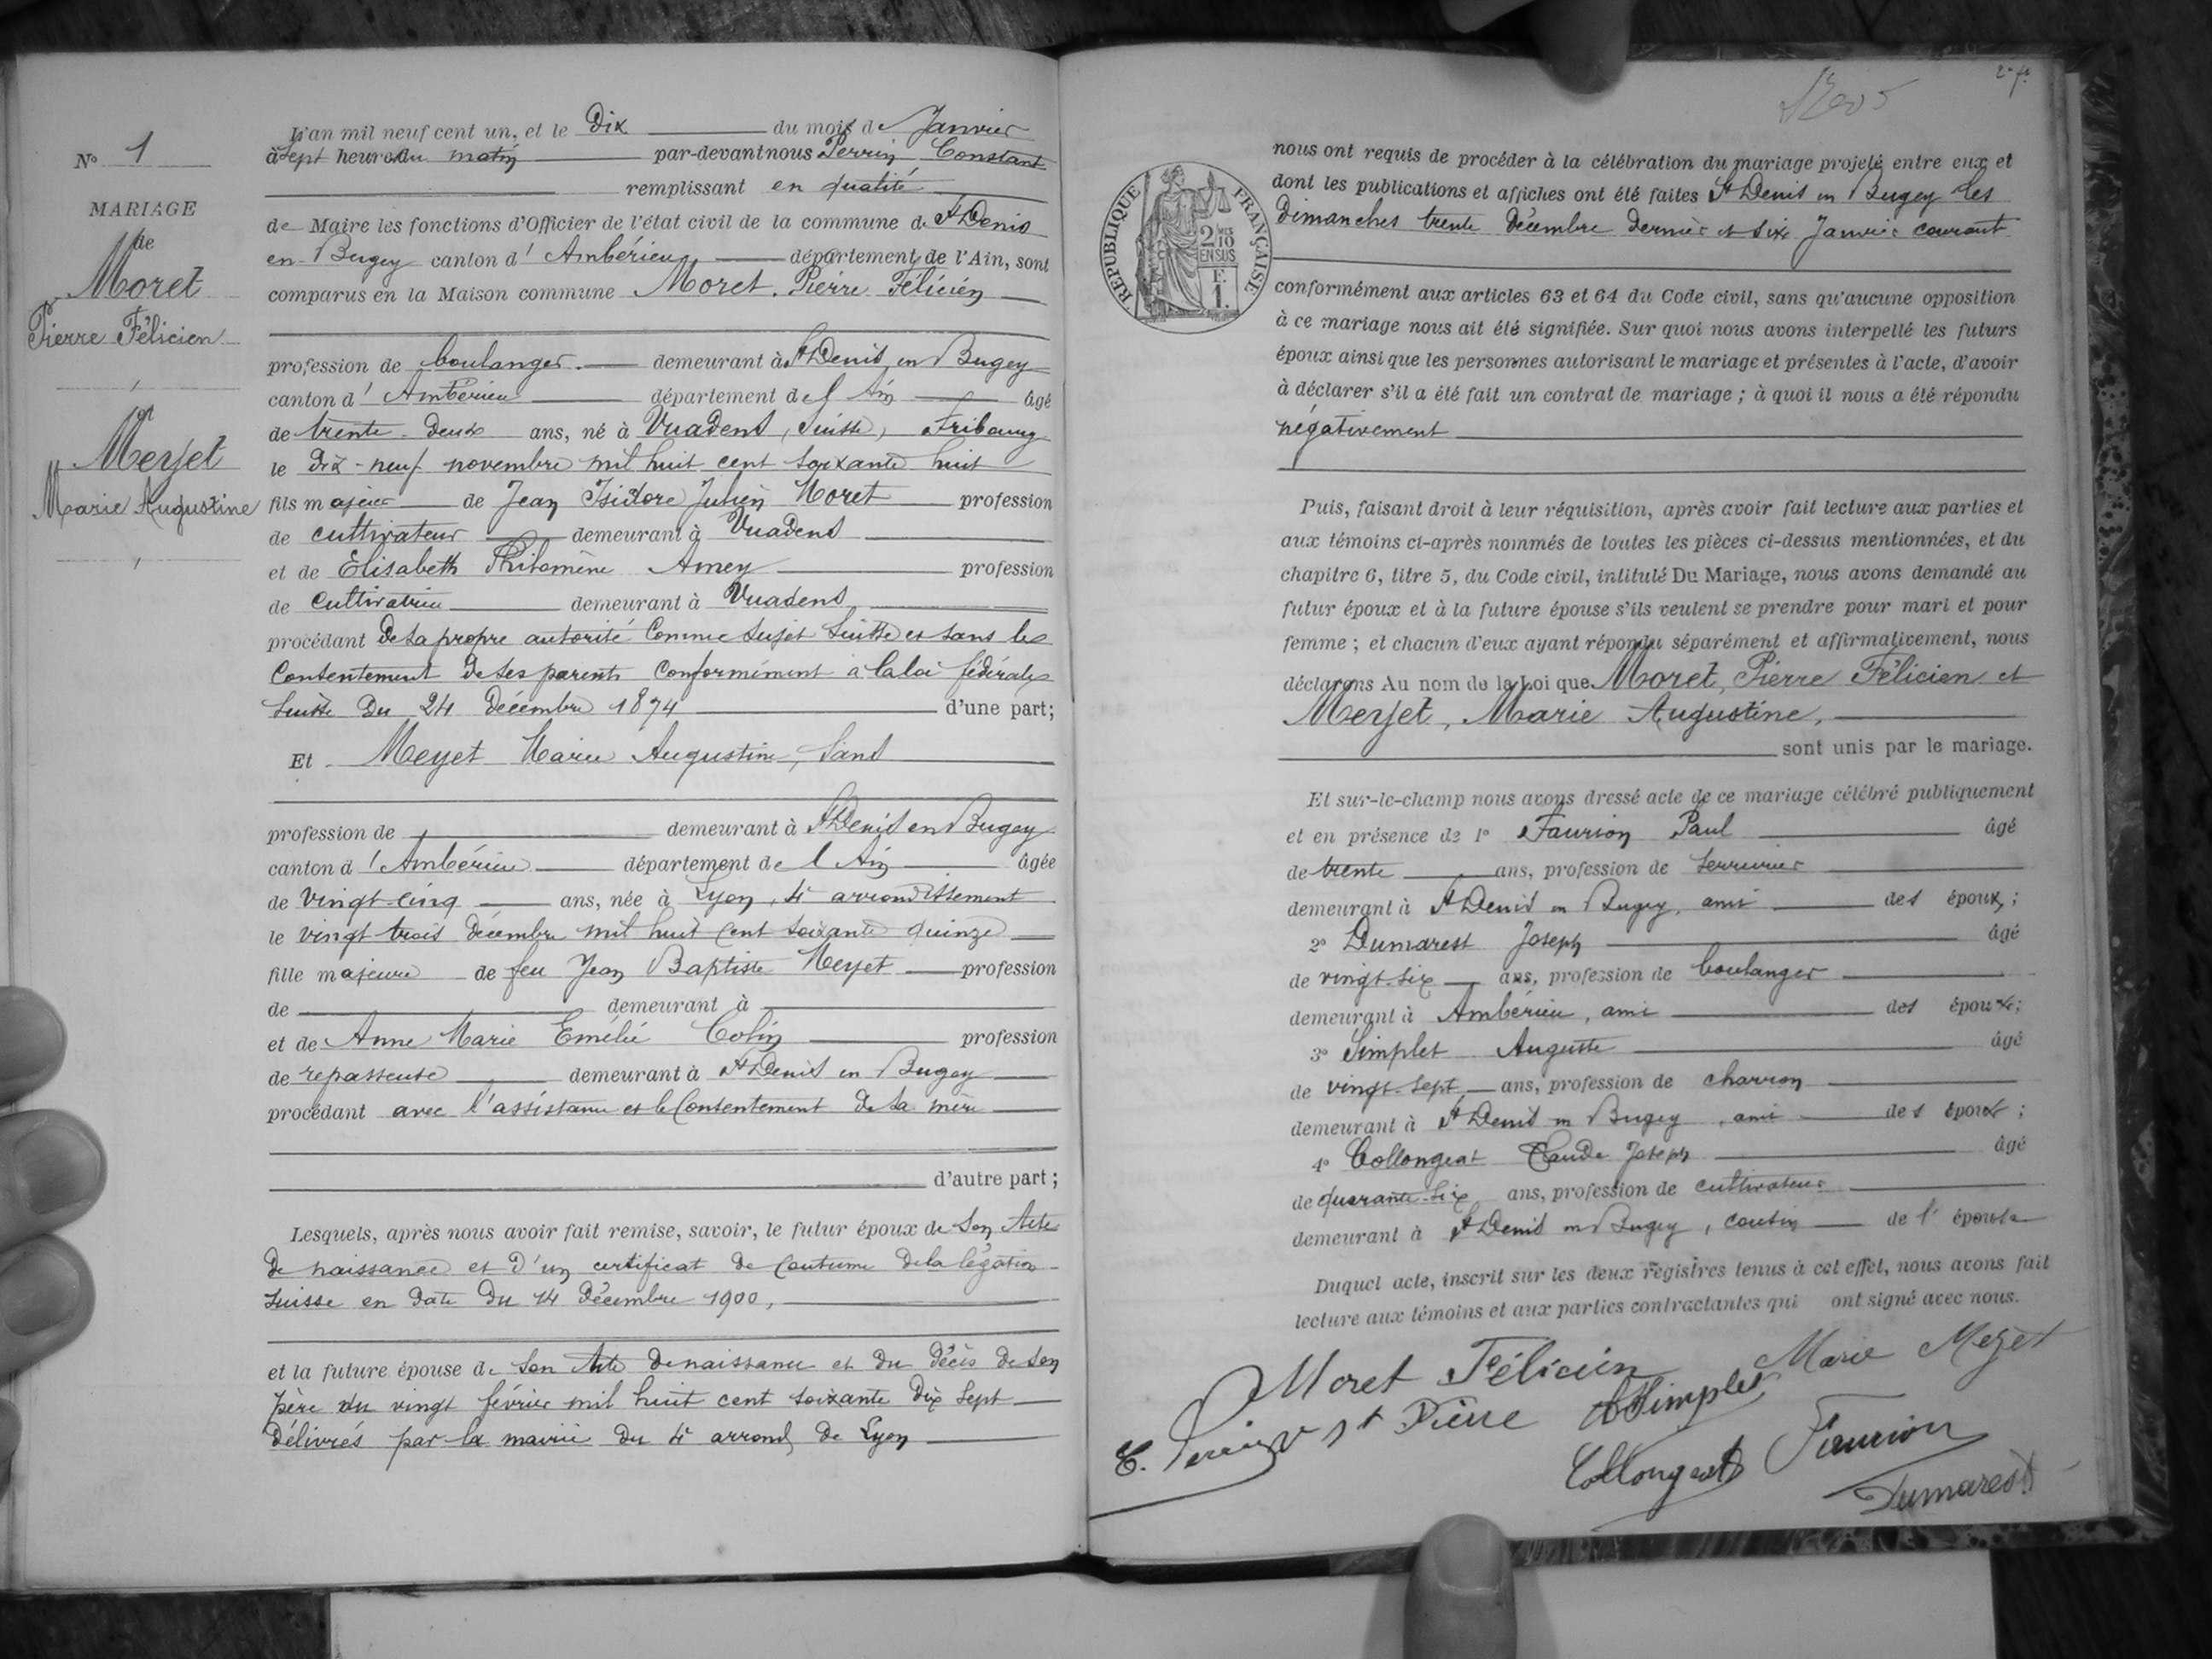 N° 1
MARIAGE
de
Moret
Pierre Félicien
Meyet
Marie Augustine
L'an mil neuf cent un, et le Dix du mois de Janvier
à Sept heures du matin par-devant nous Perrin Constant
remplissant en qualité
de Maire les fonctions d'Officier de l'état civil de la commune de St Denis
en Bugey canton d'Ambérieu département de l'Ain, sont
comparus en la Maison commune Moret Pierre Félicien
profession de boulanger demeurant à St Denis en Bugey
canton d'Ambérieu département de l'Ain âgé
de trente-deux ans, né à Vuadens, Suisse, Fribourg
le dix-neuf novembre mil huit cent soixante huit
fils majeur de Jean Isidore Julien Moret profession
de cultivateur demeurant à Vuadens
et de Elisabeth Philomène Amey profession
de cultivatrice demeurant à Vuadens
procédant de sa propre autorité comme sujet Suisse et sans le
consentement de ses parents conformément à la loi fédérale
Suisse du 24 décembre 1874 d'une part;
Et Meyet Marie Augustine, sans
profession de demeurant à St Denis en Bugey
canton d'Ambérieu département de l'Ain âgée
de vingt-cinq ans, née à Lyon, 4e arrondissement
le vingt trois décembre mil huit cent soixante quinze
fille majeure de feu Jean Baptiste Meyet profession
de demeurant à
et de Anne Marie Emélie Colin profession
de repasseuse demeurant à St Denis en Bugey
procédant avec l'assistance et le consentement de sa mère
d'autre part;
Lesquels, après nous avoir fait remise, savoir, le futur époux de son Acte
de naissance et d'un certificat de coutume de la légation
Suisse en date du 14 décembre 1900,
et la future épouse de son Acte de naissance et du décès de son
père du vingt février mil huit cent soixante dix sept
délivrés par la mairie du 4e arrond de Lyon
2e f.
RÉPUBLIQUE FRANÇAISE
2 MES 10
EN SUS
F.
1.
nous ont requis de procéder à la célébration du mariage projeté entre eux et
dont les publications et affiches ont été faites St Denis en Bugey les
dimanches trente décembre dernier et six Janvier courant
conformément aux articles 63 et 64 du Code civil, sans qu'aucune opposition
à ce mariage nous ait été signifiée. Sur quoi nous avons interpellé les futurs
époux ainsi que les personnes autorisant le mariage et présentes à l'acte, d'avoir
à déclarer s'il a été fait un contrat de mariage ; à quoi il nous a été répondu
négativement
Puis, faisant droit à leur réquisition, après avoir fait lecture aux parties et
aux témoins ci-après nommés de toutes les pièces ci-dessus mentionnées, et du
chapitre 6, titre 5, du Code civil, intitulé Du Mariage, nous avons demandé au
futur époux et à la future épouse s'ils veulent se prendre pour mari et pour
femme ; et chacun d'eux ayant répondu séparément et affirmativement, nous
déclarons Au nom de la Loi que Moret, Pierre Félicien et
Meyet, Marie Augustine,
sont unis par le mariage.
Et sur-le-champ nous avons dressé acte de ce mariage célébré publiquement
et en présence de 1° Faurion Paul âgé
de trente ans, profession de serrurier
demeurant à St Denis en Bugey, ami des époux ;
2° Dumarest Joseph âgé
de vingt-six ans, profession de boulanger
demeurant à Ambérieu, ami des époux ;
3° Simplet Auguste âgé
de vingt-sept ans, profession de charron
demeurant à St Denis en Bugey, ami des époux ;
4° Collongeat Claude Joseph âgé
de quarante-six ans, profession de cultivateur
demeurant à St Denis en Bugey, cousin de l'épouse
Duquel acte, inscrit sur les deux registres tenus à cet effet, nous avons fait
lecture aux témoins et aux parties contractantes qui ont signé avec nous.
Moret Félicien Marie Meyet
C. Perrin Pierre A Simplet
Collongeat Faurion
Dumarest